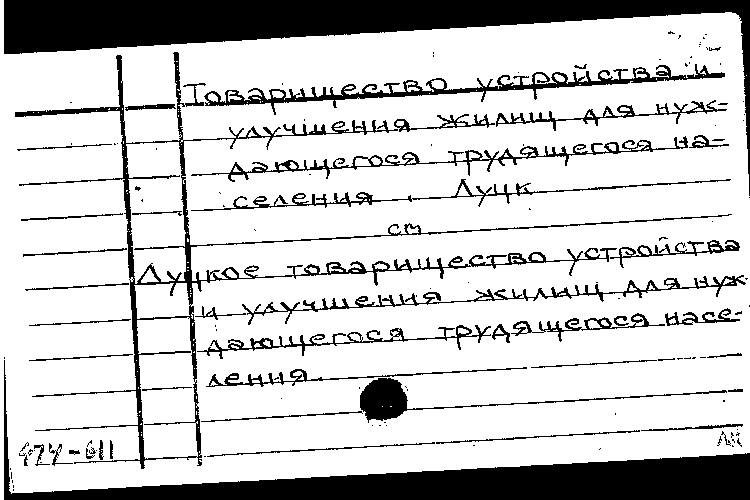 Товарищество устройства и
улучшения жилищ для нуж=
дающегося трудящегося на=
селения. Луцк
см
Луцкое товарищество устройства
и улучшения жилищ для нуж-
дающегося трудящегося насе-
ления.
474-611